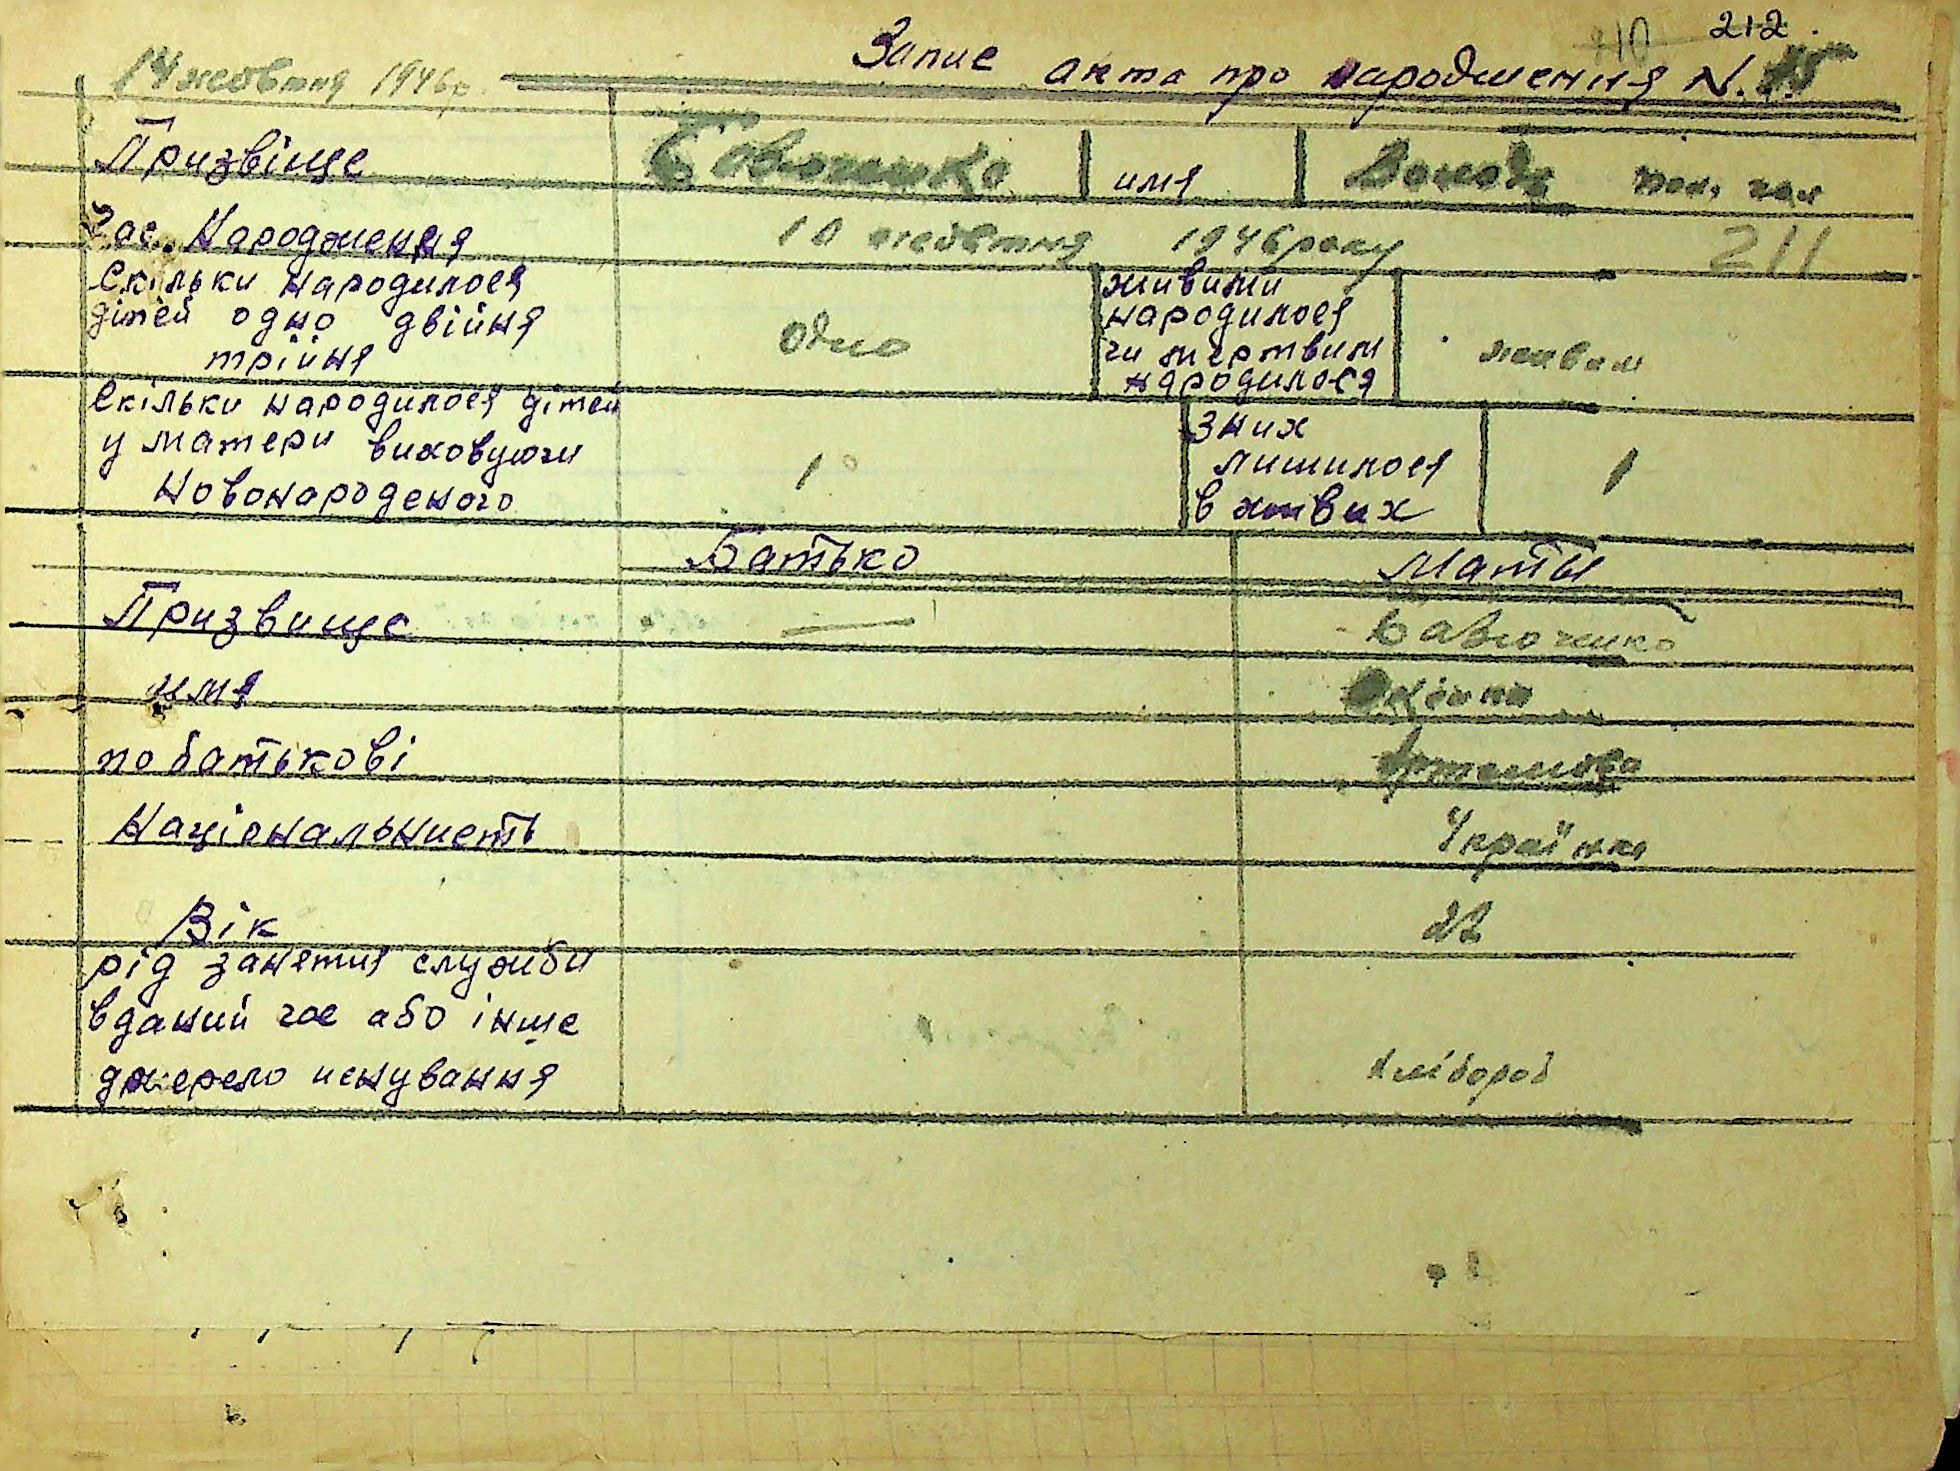 212.
14 жовтня 1946р.
Запис акта про народження N. 15
Призвіще Бавюченко имя Володя пол. чол
Час Народження 10 жовтня 1946 року 211
Скільки народилося
дітей одно двійня
трійня
одно
живими
народилося
чи мертвими
народилося
живим
Скільки народилося дітей
у матери виховуючи
новонародженого
1
з них
лишилося
в живих
1
Батько Маты
Призвище — Бавюченко
имя
по батькові Артемовна
Націоналънисть Українка
Вік 22
рід занятия служби
в даний час або інше
джерело иснування
хлібороб